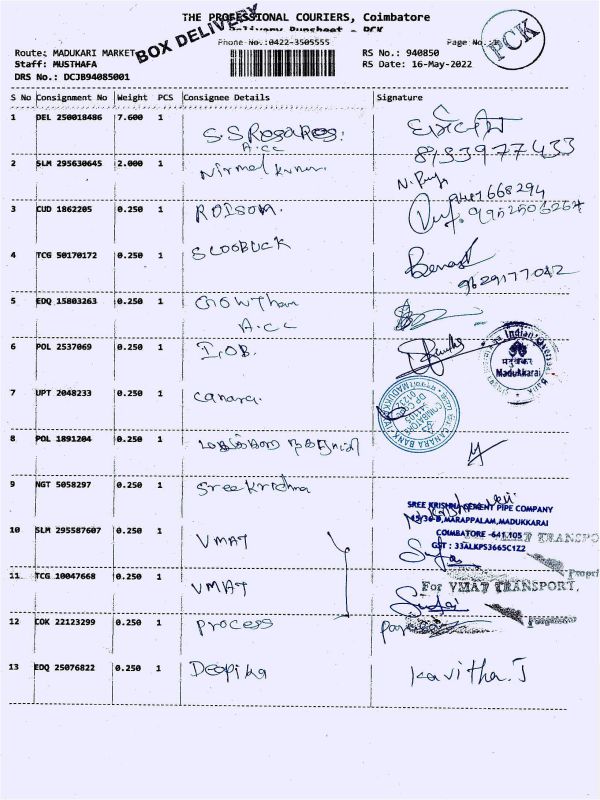 THE PROFESSIONAL COURIERS, Coimbatore
BOX DELIVERY
Delivery Runsheet - PCK
Phone No.:0422-3505555
Page No.:
PCK
Route: MADUKARI MARKET
RS No.: 940850
Staff: MUSTHAFA
RS Date: 16-May-2022
DRS No.: DCJB94085001
S No Consignment No Weight PCS Consignee Details Signature
1 DEL 250018486 7.600 1
A.CC
2 SLM 295630645 2.000 1 Nirmal Kumar.
3 CUD 1862205 0.250 1 ROISON.
4 TCG 50170172 0.250 1 SCOOBUCK
9629177042
5 EDQ 15803263 0.250 1 Gowtham
A.CC
6 POL 2537069 0.250 1 I.OB.
Madukkarai
7 UPT 2048233 0.250 1 Canara.
CANARA BANK
COIMBATORE
8 POL 1891204 0.250 1
9 NGT 5058297 0.250 1 Sree Krishna
SREE KRISHNA CEMENT PIPE COMPANY
MARAPPALAM, MADUKKARAI
COIMBATORE -641 105
GST : 33ALKPS3665C1Z2
10 SLM 295587607 0.250 1 VMAT
VMAT TRANSPO
11 TCG 10047668 0.250 1 VMAT
For VMAT TRANSPORT,
12 COK 22123299 0.250 1 process
13 EDQ 25076822 0.250 1 Deepika Kavitha.J